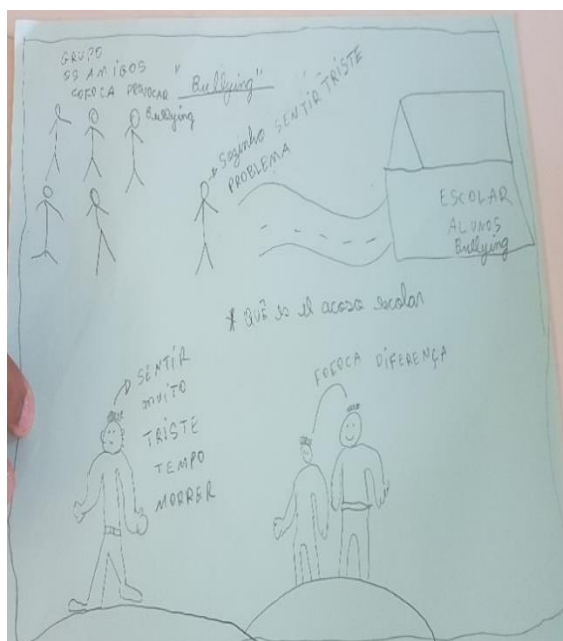 GRUPO
OS AMIGOS
COFOCA PROVOCAR "Bullying"
Bullying
Sozinho SENTIR TRISTE
PROBLEMA
ESCOLAR
ALUNOS
Bullying
* QUÊ es el acoso escolar
SENTIR
MUITO
TRISTE
TEMPO
MORRER
FOFOCA DIFERENÇA